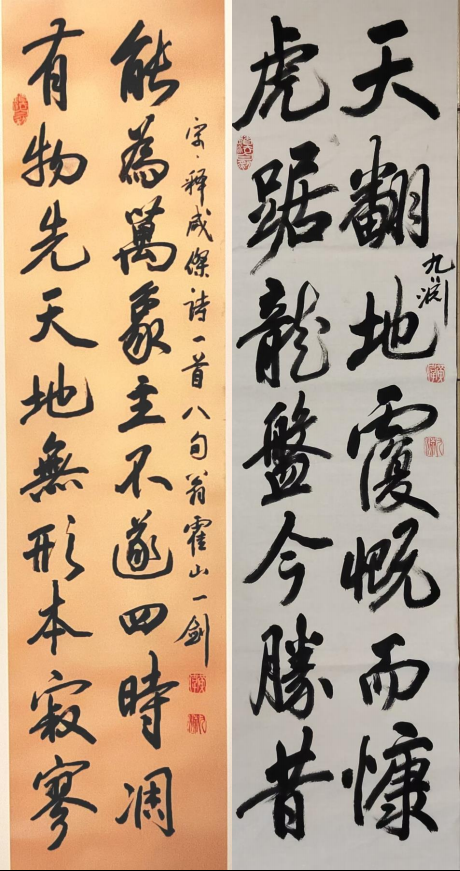 有物先天地無形本寂寥
能為萬象主不遂四時凋
宋、释咸傑詩一首八句翁霍山一劍
虎踞龍盤今勝昔
天翻地覆慨而慷
九渊